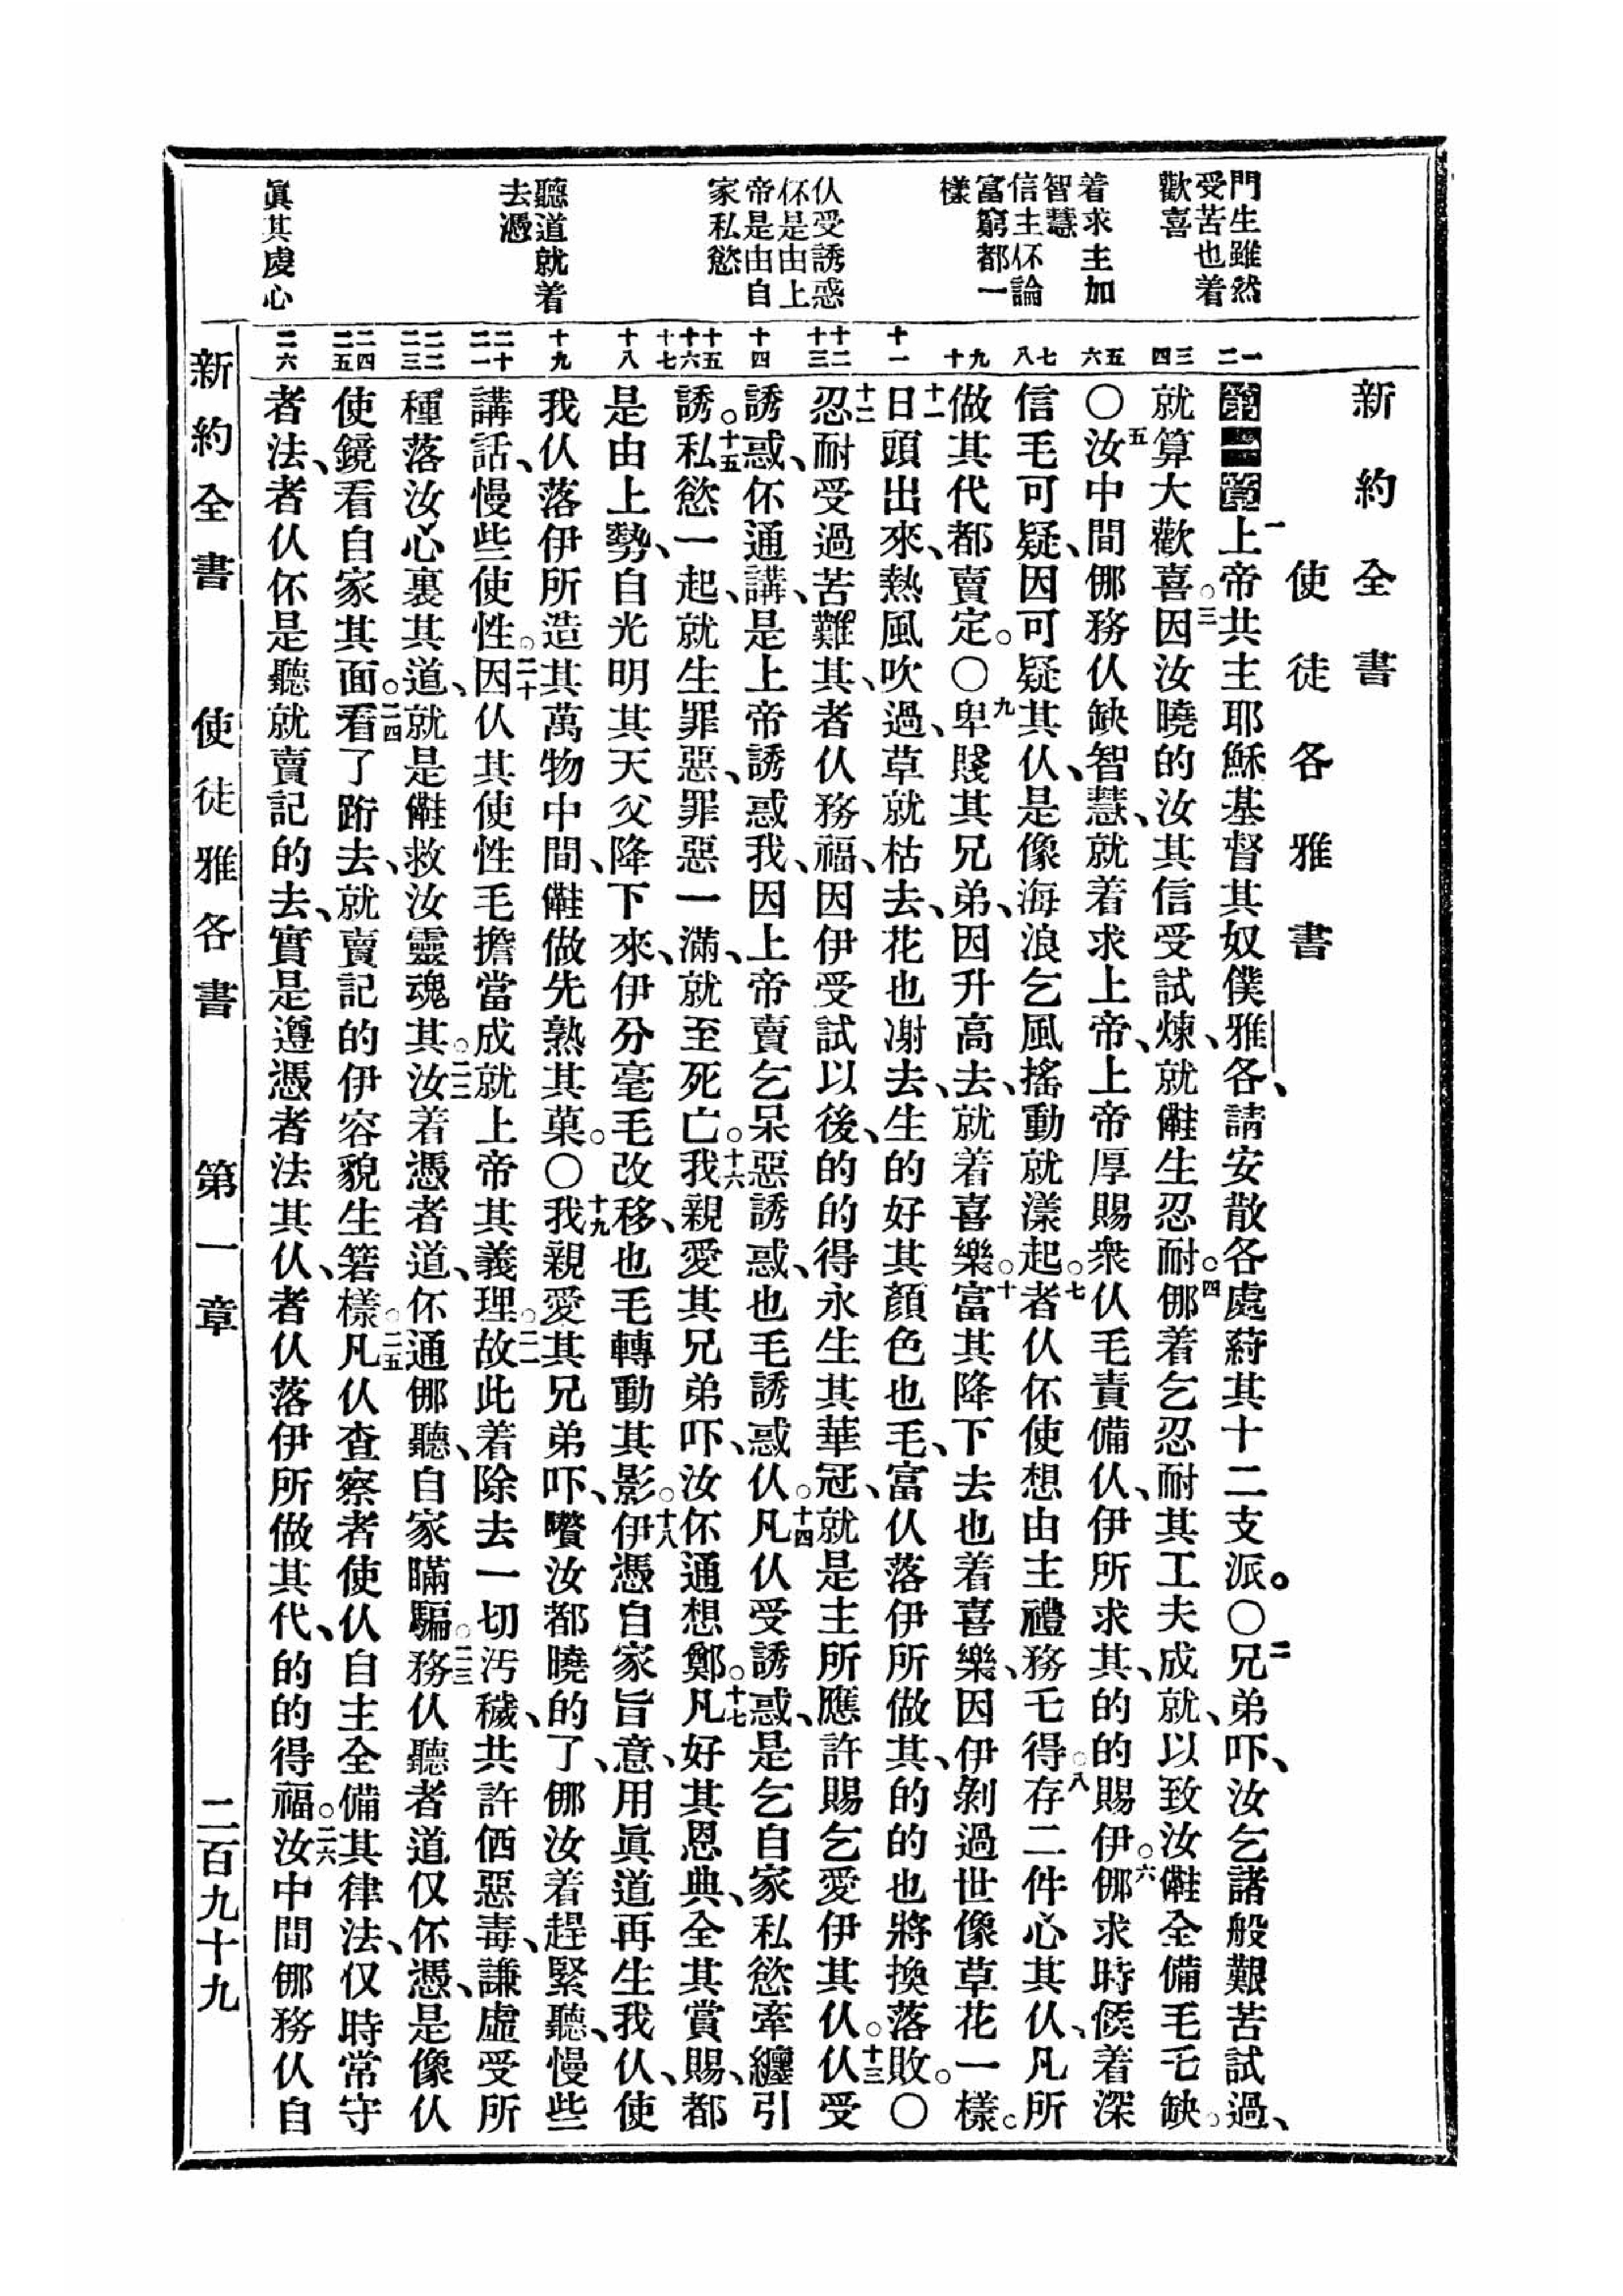 門生雖然
受苦也着
歡喜
着求主加
智慧
信主伓論
富窮都一
樣
仈受誘惑
伓是由上
帝是由自
家私慾
聽道就着
去憑
眞其虔心
新約全書
使徒各雅書
第一章 一上帝共主耶穌基督其奴僕雅各、請安散各處葤其十二支派。〇二兄弟吓、汝乞諸般艱苦試過、
就算大歡喜。三因汝曉的汝其信受試煉、就生忍耐。四㑚着乞忍耐其工夫成就、以致汝全備毛乇缺。
〇五汝中間㑚務仈缺智慧、就着求上帝、上帝厚賜衆仈毛責備仈、伊所求其、的的賜伊。六㑚求時候着深
信毛可疑、因可疑其仈、是像海浪乞風搖動就漾起。七者仈伓使想由主禮務乇得。八存二件心其仈、凡所
做其代、都賣定。〇九卑賤其兄弟、因升高去、就着喜樂。十富其降下去也着喜樂、因伊剝過世像草花一樣。
十一日頭出來、熱風吹過、草就枯去、花也凋去、生的好其顏色也毛、富仈落伊所做其、的的也將換落敗。〇
十二忍耐受過苦難其、者仈務福、因伊受試以後、的的得永生其華冠、就是主所應許賜乞愛伊其仈。十三仈受
誘惑、伓通講、是上帝誘惑我、因上帝賣乞呆惡誘惑、也毛誘惑仈。十四凡仈受誘惑、是乞自家私慾牽纏引
誘。十五私慾一起、就生罪惡、罪惡一滿、就至死亡。十六我親愛其兄弟吓、汝伓通想鄭。十七凡好其恩典、全其賞賜、都
是由上勢、自光明其天父降下來、伊分毫毛改移、也毛轉動其影。十八伊憑自家旨意、用眞道再生我仈、使
我仈落伊所造其萬物中間、做先熟其菓。〇十九我親愛其兄弟吓、嚽汝都曉的了、㑚汝着趕緊聽、慢些
講話、慢些使性。二十因仈其使性毛擔當成就上帝其義理。二一故此着除去一切汚穢、共許𠉂惡毒、謙虛受所
種落汝心裏其道、就是救汝靈魂其。二二汝着憑者道、伓通㑚聽、自家瞞騙。二三務仈聽者道仅伓憑、是像仈
使鏡看自家其面。二四看了跻去、就賣記的伊容貌生箬樣。二五凡仈查察者使仈自主全備其律法、仅時常守
者法、者仈伓是聽就賣記的去、實是遵憑者法其仈、者仈落伊所做其代、的的得福。二六汝中間㑚務仈自
一
二
三
四
五
六
七
八
九
十
十一
十二
十三
十四
十五
十六
十七
十八
十九
二十
二一
二二
二三
二四
二五
二六
新約全書　使徒雅各書　第一章　二百九十九